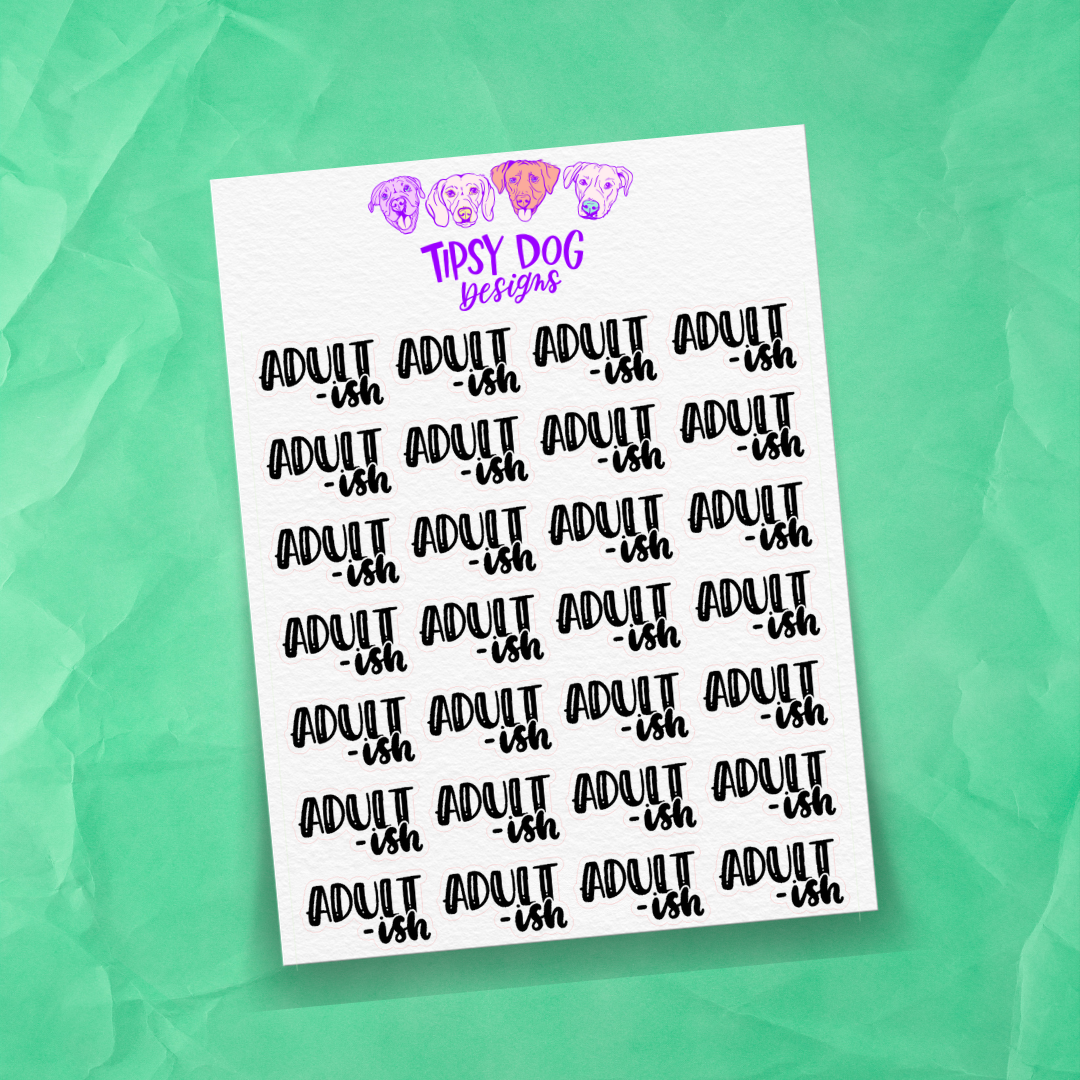 TIPSY DOG
Designs
ADULT ADULT ADULT ADULT
-ish -ish -ish -ish
ADULT ADULT ADULT ADULT
-ish -ish -ish -ish
ADULT ADULT ADULT ADULT
-ish -ish -ish -ish
ADULT ADULT ADULT ADULT
-ish -ish -ish -ish
ADULT ADULT ADULT ADULT
-ish -ish -ish -ish
ADULT ADULT ADULT ADULT
-ish -ish -ish -ish
ADULT ADULT ADULT ADULT
-ish -ish -ish -ish